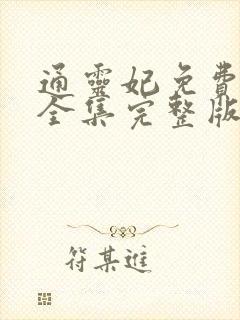 通靈妃免費
全集完整版
符某進